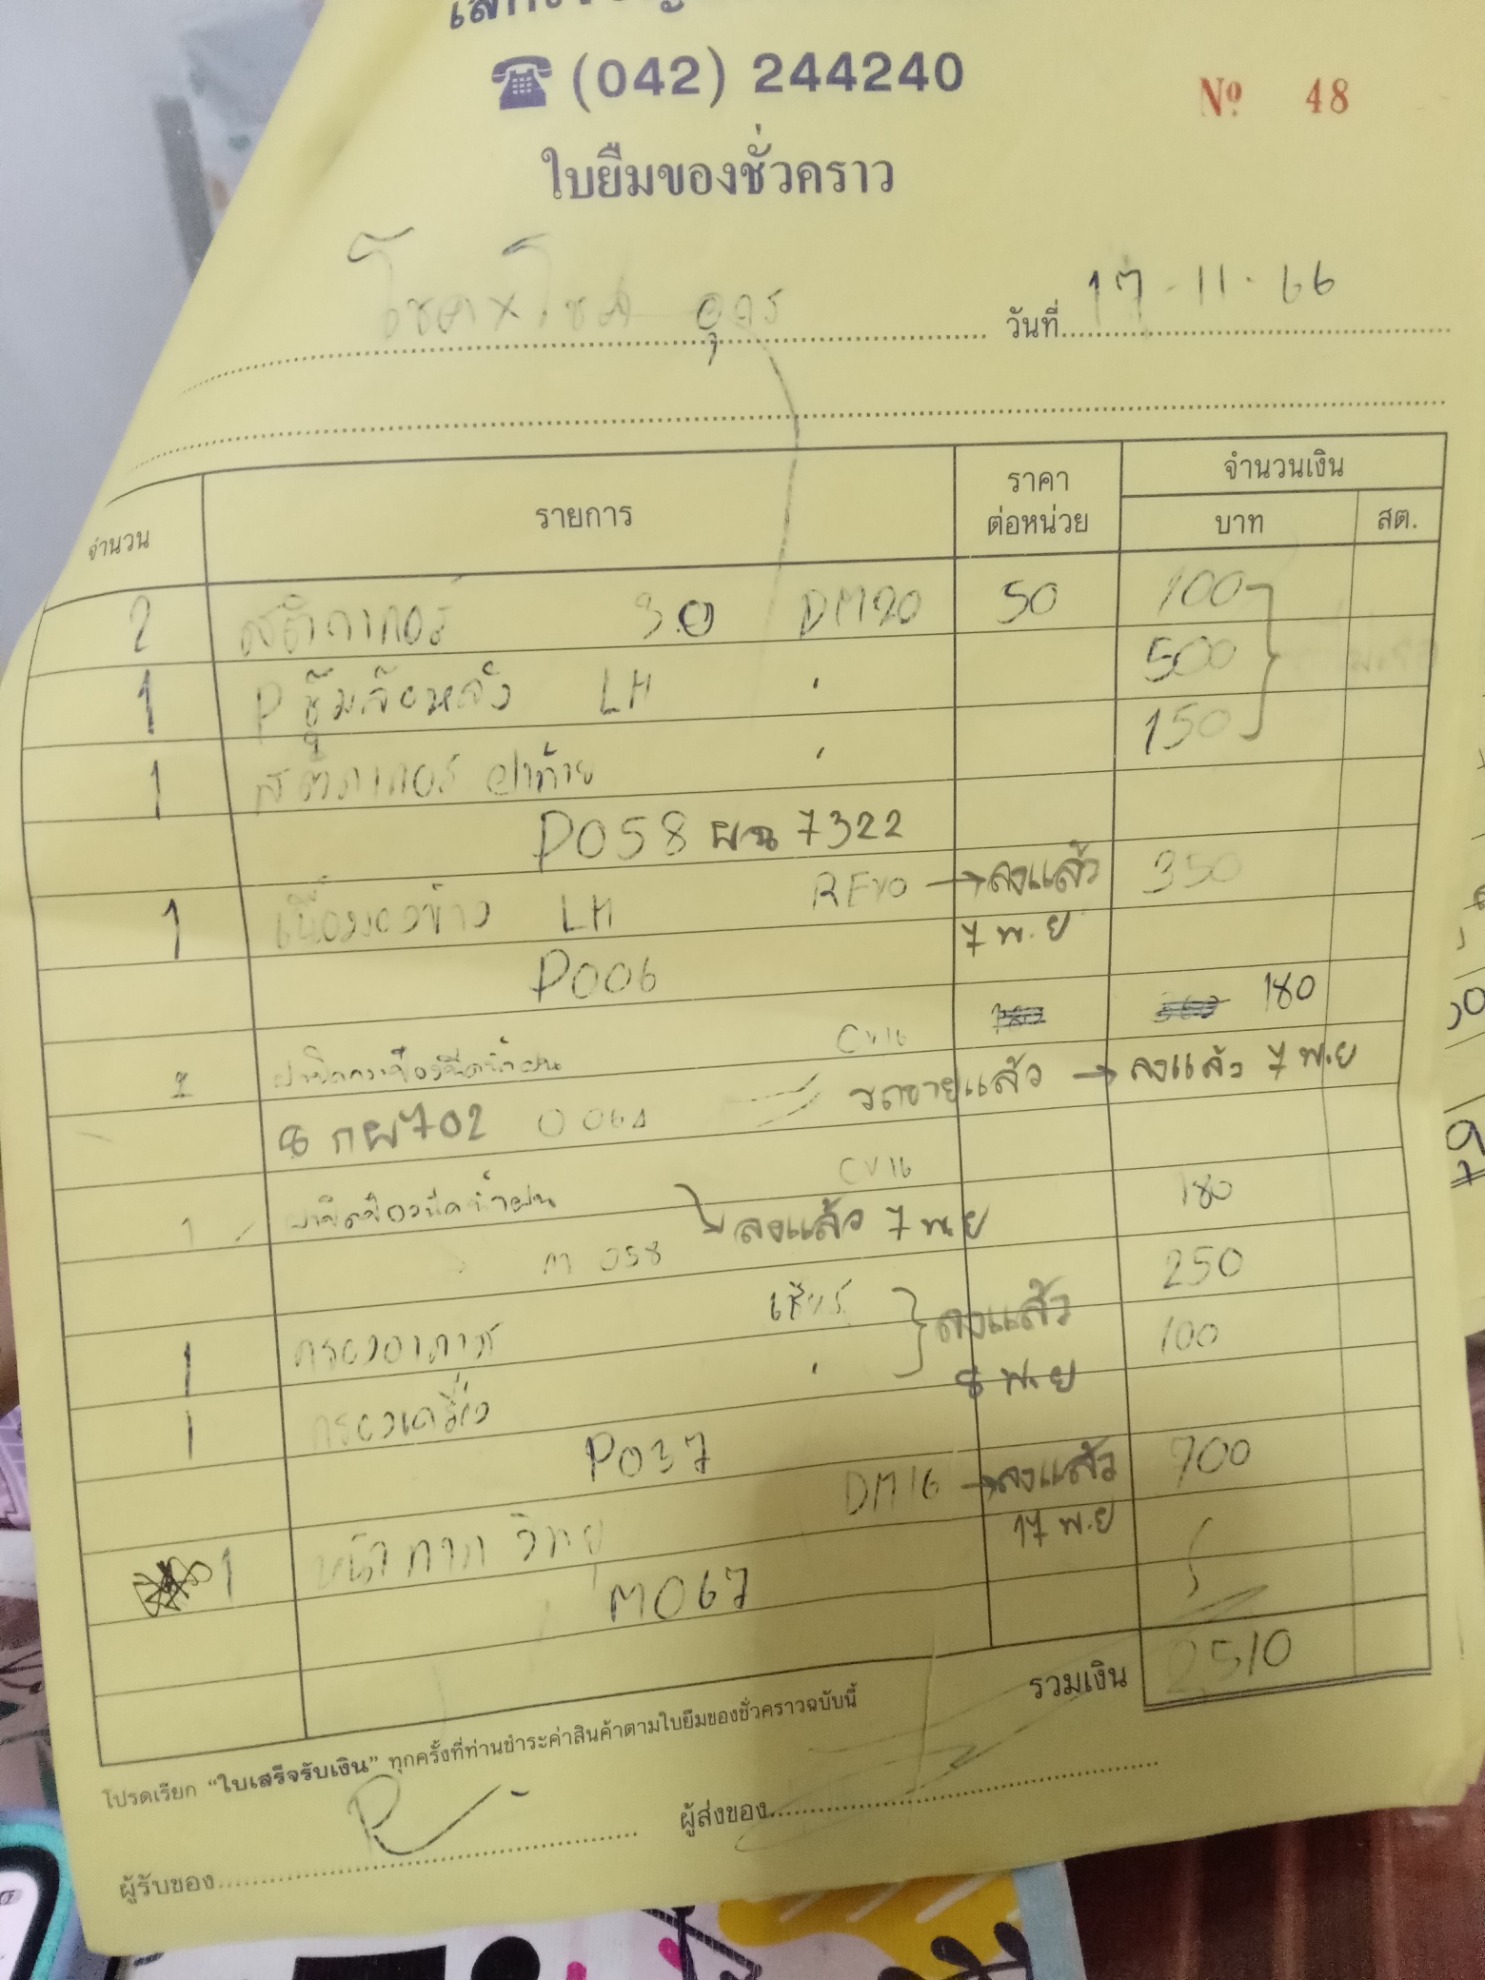 ☎ (042) 244240
Nº 48
ใบยืมของชั่วคราว
โชคxโชค อุดร วันที่ 17-11-66
จำนวน รายการ ราคาต่อหน่วย จำนวนเงิน
บาท สต.
2 สติกเกอร์ 3.0 DM20 50 100
1 P ซุ้มล้อหลัง LH " 500
1 สติกเกอร์ ฝาท้าย " 150
P058 ผฉ 7322
1 LH REVO → ลงแล้ว 350
7 พ.ย
P006
180
CV16
8 กผ 702 006A รถขายแล้ว → ลงแล้ว 7 พ.ย
1 ฝาปิดฉีดน้ำฝน CV16 180
M 058 ลงแล้ว 7 พ.ย
1 กรองอากาศ เชียร์ ลงแล้ว 250
1 กรองเครื่อง " 8 พ.ย 100
P037
1 หน้ากาก วิทยุ DM16 → ลงแล้ว 700
17 พ.ย
M067
รวมเงิน 2,510
โปรดเรียก “ใบเสร็จรับเงิน” ทุกครั้งที่ท่านชำระค่าสินค้าตามใบยืมของชั่วคราวฉบับนี้
ผู้รับของ ผู้ส่งของ